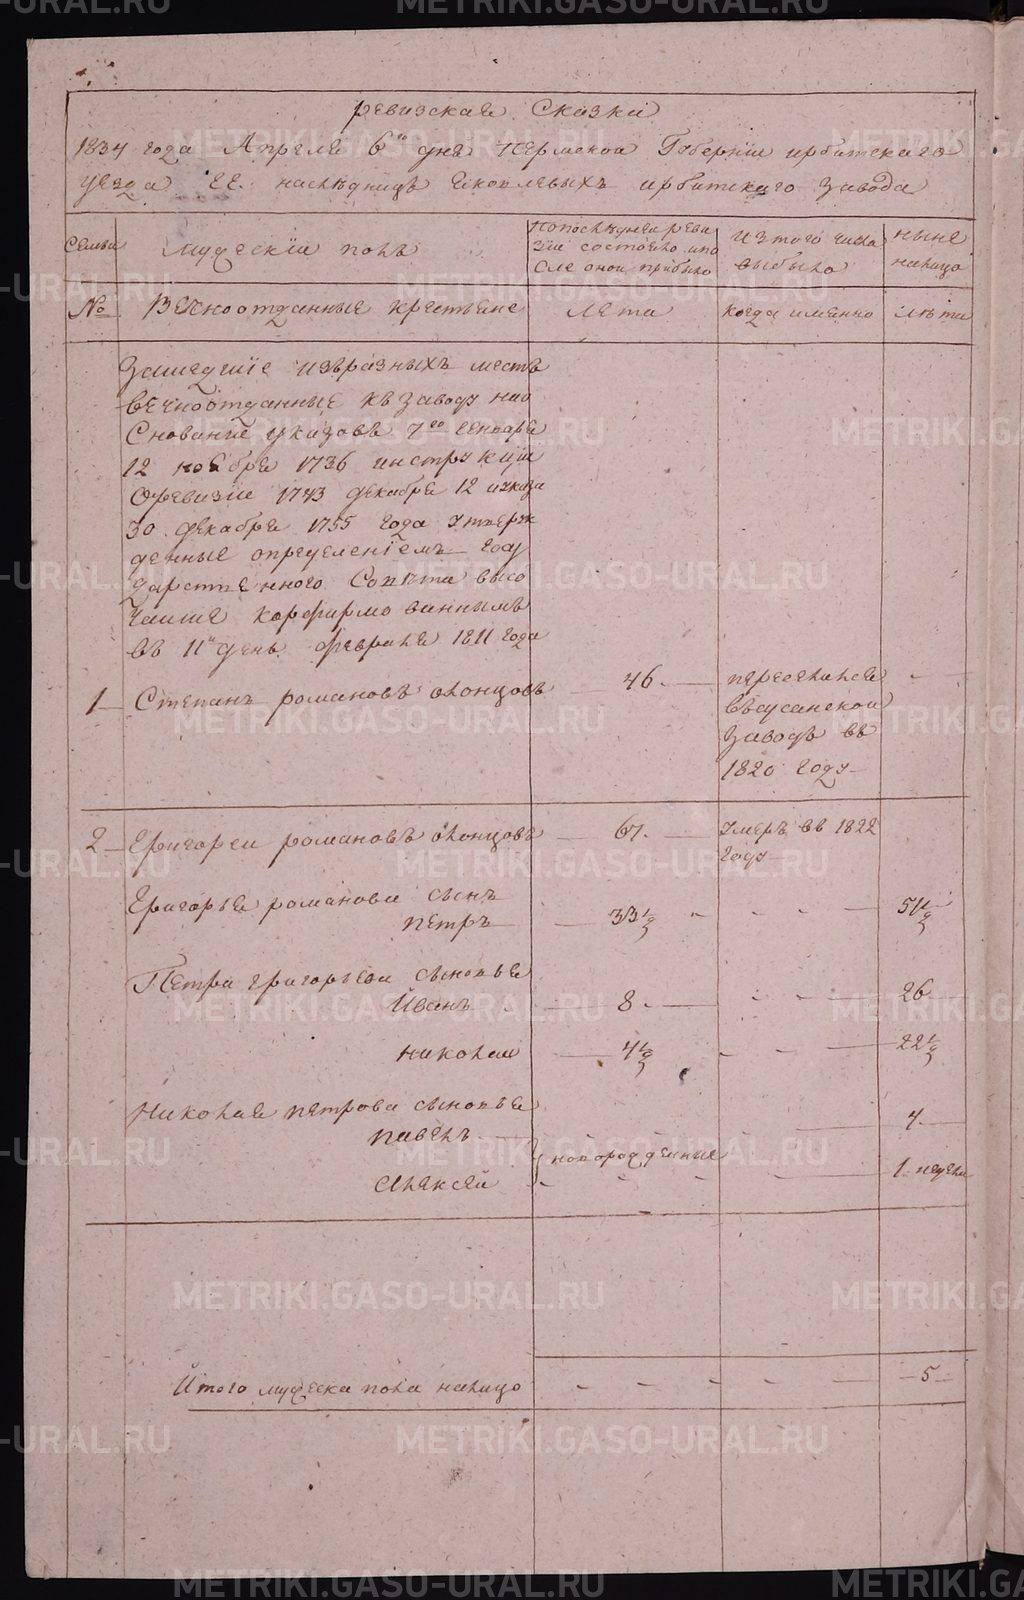 ревизская Сказка
1834 года Апреля 6го дня Пермской Губернїи ирбитскаго
уезда Е.Е. наследницъ яковлевыхъ ирбитскаго завода
Семьи
Мужескїи полъ
Попоследнеи реви
зїи состояло ипо
сле онои прибыло
Изтого числа
выбыло
ныне
налицо
№
Вечноотданные крестьяне
Лета
когда именно
лета
Зашедшїе изъразныхъ местъ
вечноотданные къзаводу нао
снованїи указовъ 7го генваря
12 ноября 1736 инструкцїи
Оревизїи 1743 декабря 12 иуказа
30 декабря 1755 года утверж
денные определенїемъ госу
дарственного Совета высо
чаише конфирмованнымъ
въ 11й день февраля 1811 года
1 Степанъ романовъ оконцовъ
46.
переселился
въсусанской
заводъ въ
1820 году
2 Григореи романовъ оконцовъ
67.
умеръ въ 1822
году
Григорья романова сынъ
петръ
33 1/2
51 1/2
Петра григорьева сыновья
Иванъ
8
26
николаи
4 1/2
22 1/2
Николая петрова сыновья
павелъ
4
новорожденные
Алексеи
1 неделя
Итого мужеска пола налицо
5
METRIKI.GASO-URAL.RU